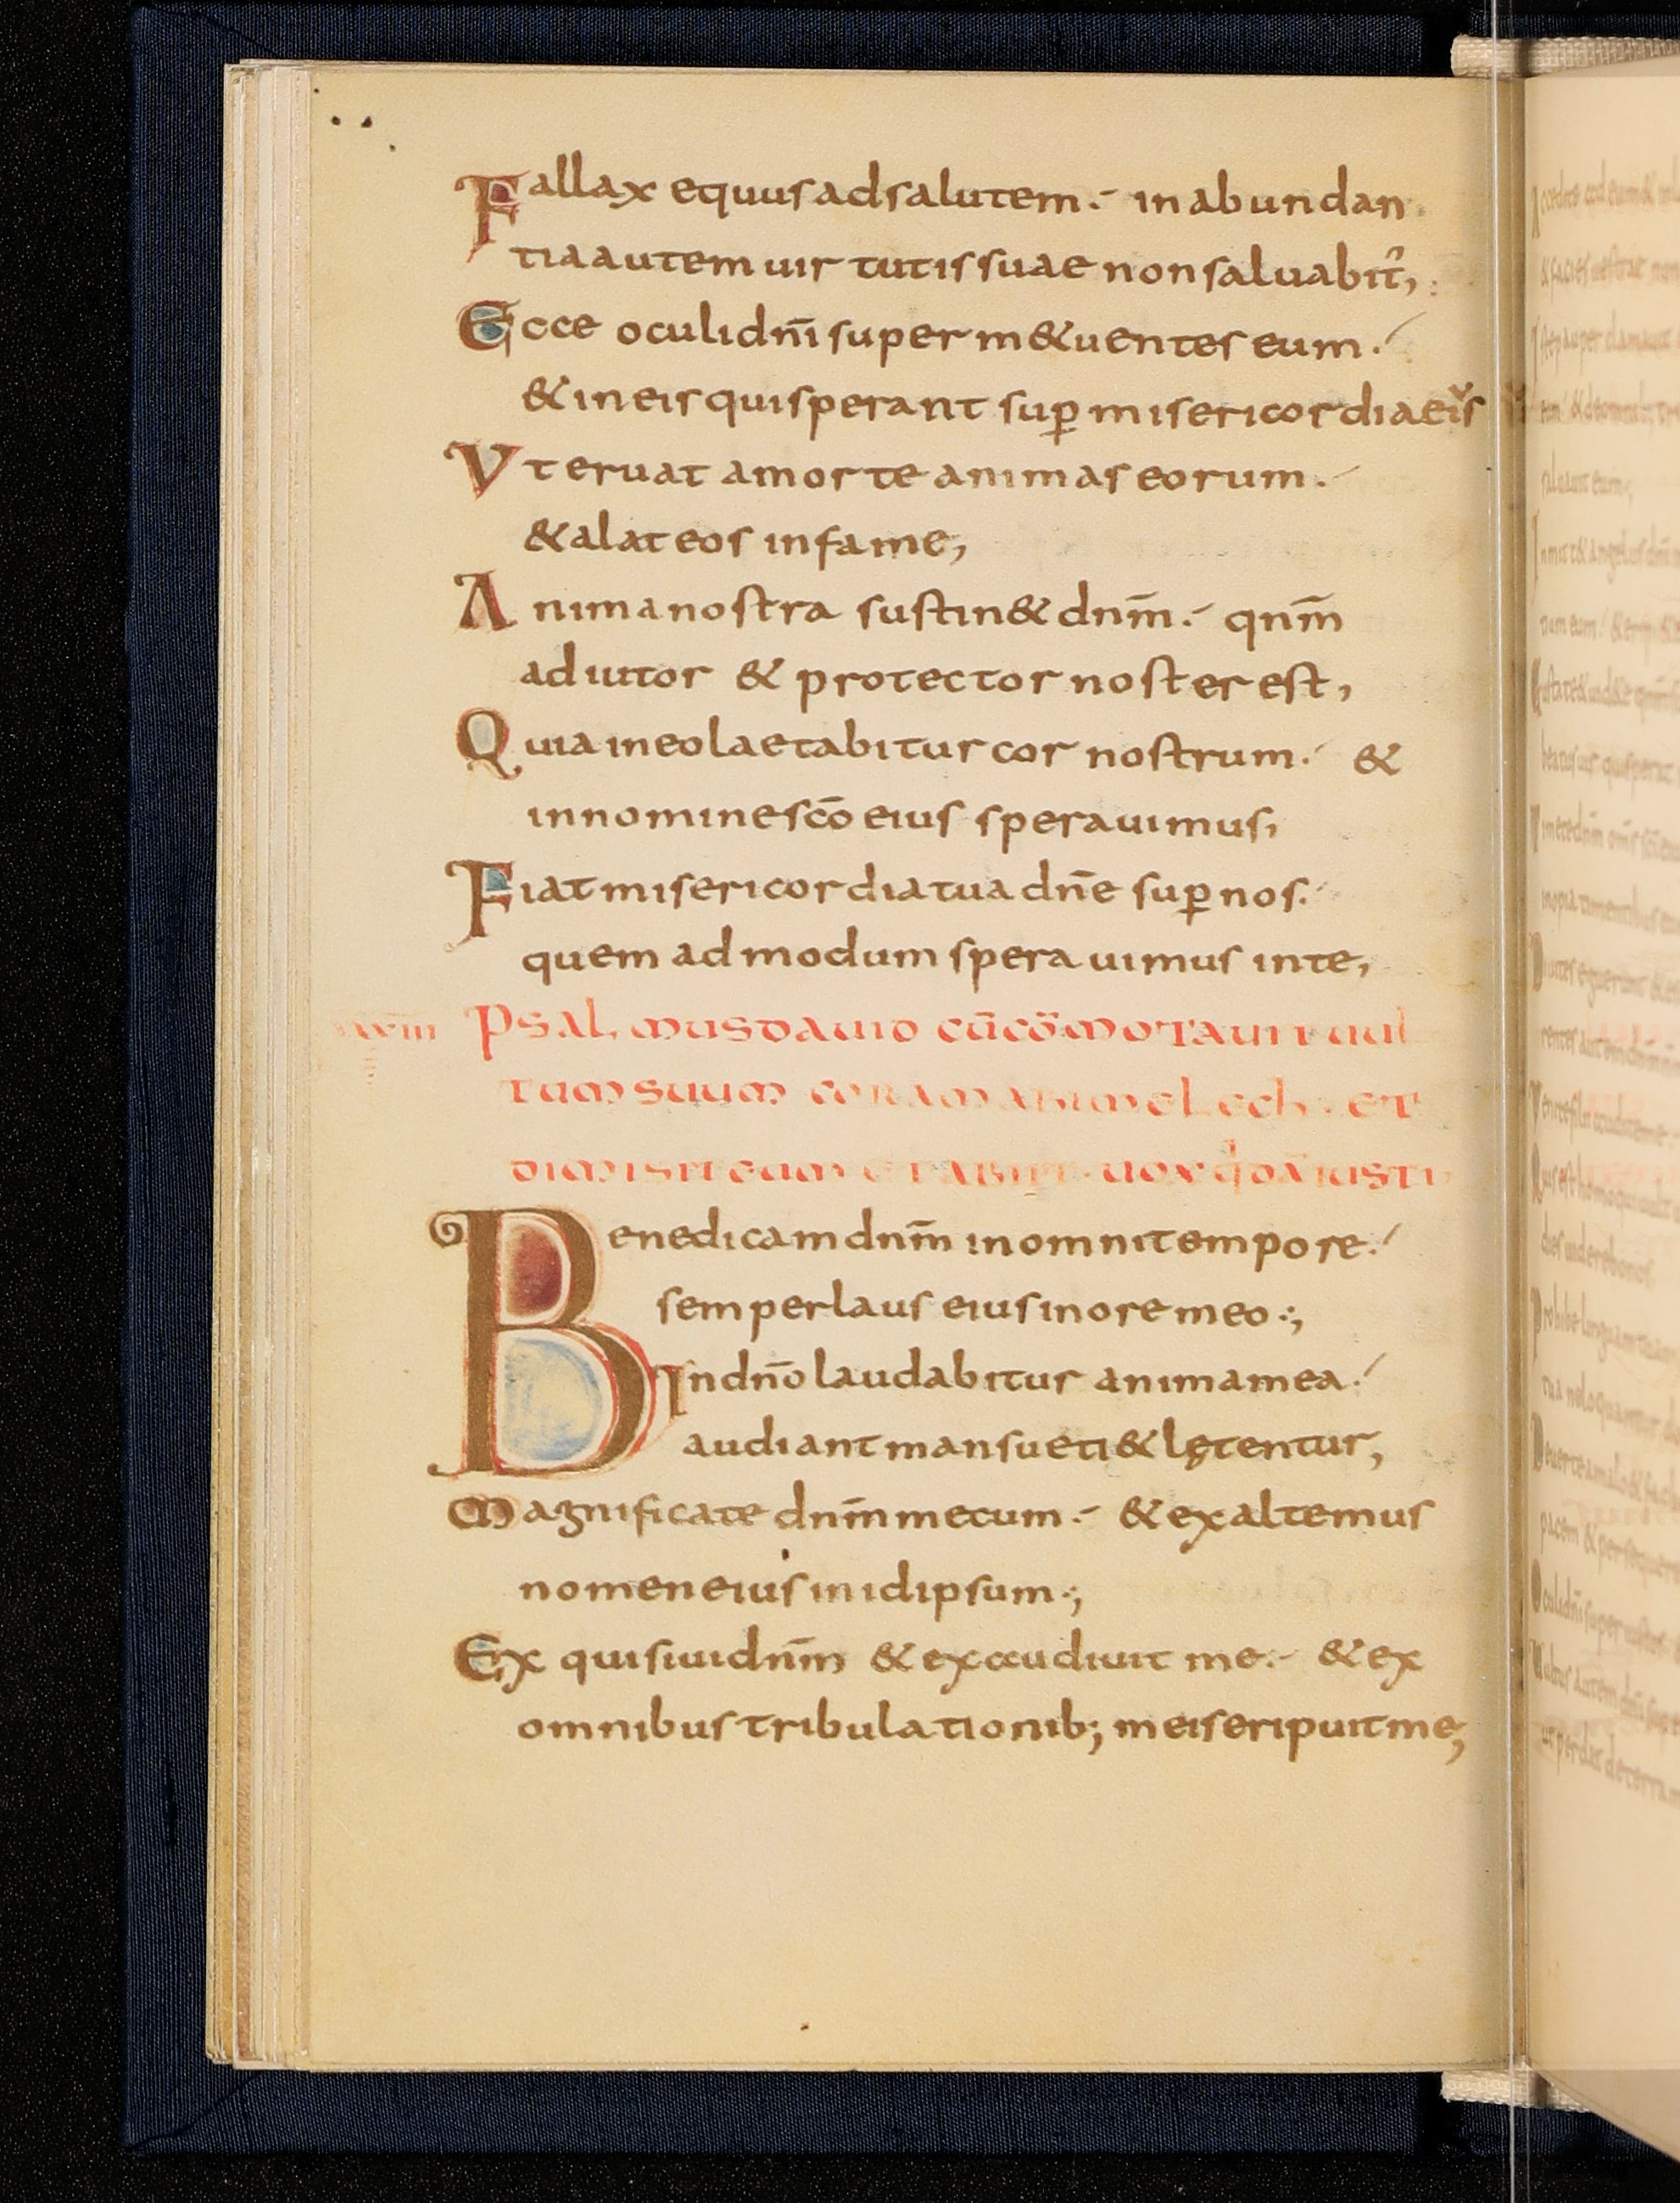 Fallax equus ad salutem. in abundan
tia autem uirtutis suae non saluabit̉,
Ecce oculi dn̄i super m&uentes eum.
& in eis qui sperant sup̄ misericordia eiʼs
Vt eruat a morte animas eorum.
& alat eos in fame,
Anima nostra sustin& dnm̄. qnm̄
adiutor & protector noster est,
Quia in eo laetabitur cor nostrum. &
in nomine sc̄o eius sperauimus,
Fiat misericordia tua dn̄e sup̄ nos.
quem ad modum sperauimus in te,
xxxiii Psalmus dauid cū cōmotauit uul
tum suum coram abimelech. et
dimisit eum et abiit. uox q̄dā iusti
Benedicam dnm̄ in omni tempore.
semper laus eius in ore meo:,
In dn̄o laudabitur anima mea.
audiant mansueti & lętentur,
Magnificate dnm̄ mecum. & exaltemus
nomen eius in idipsum:,
Exquisiui dnm̄ & exaudiuit me. & ex
omnibus tribulationib; meis eripuit me;